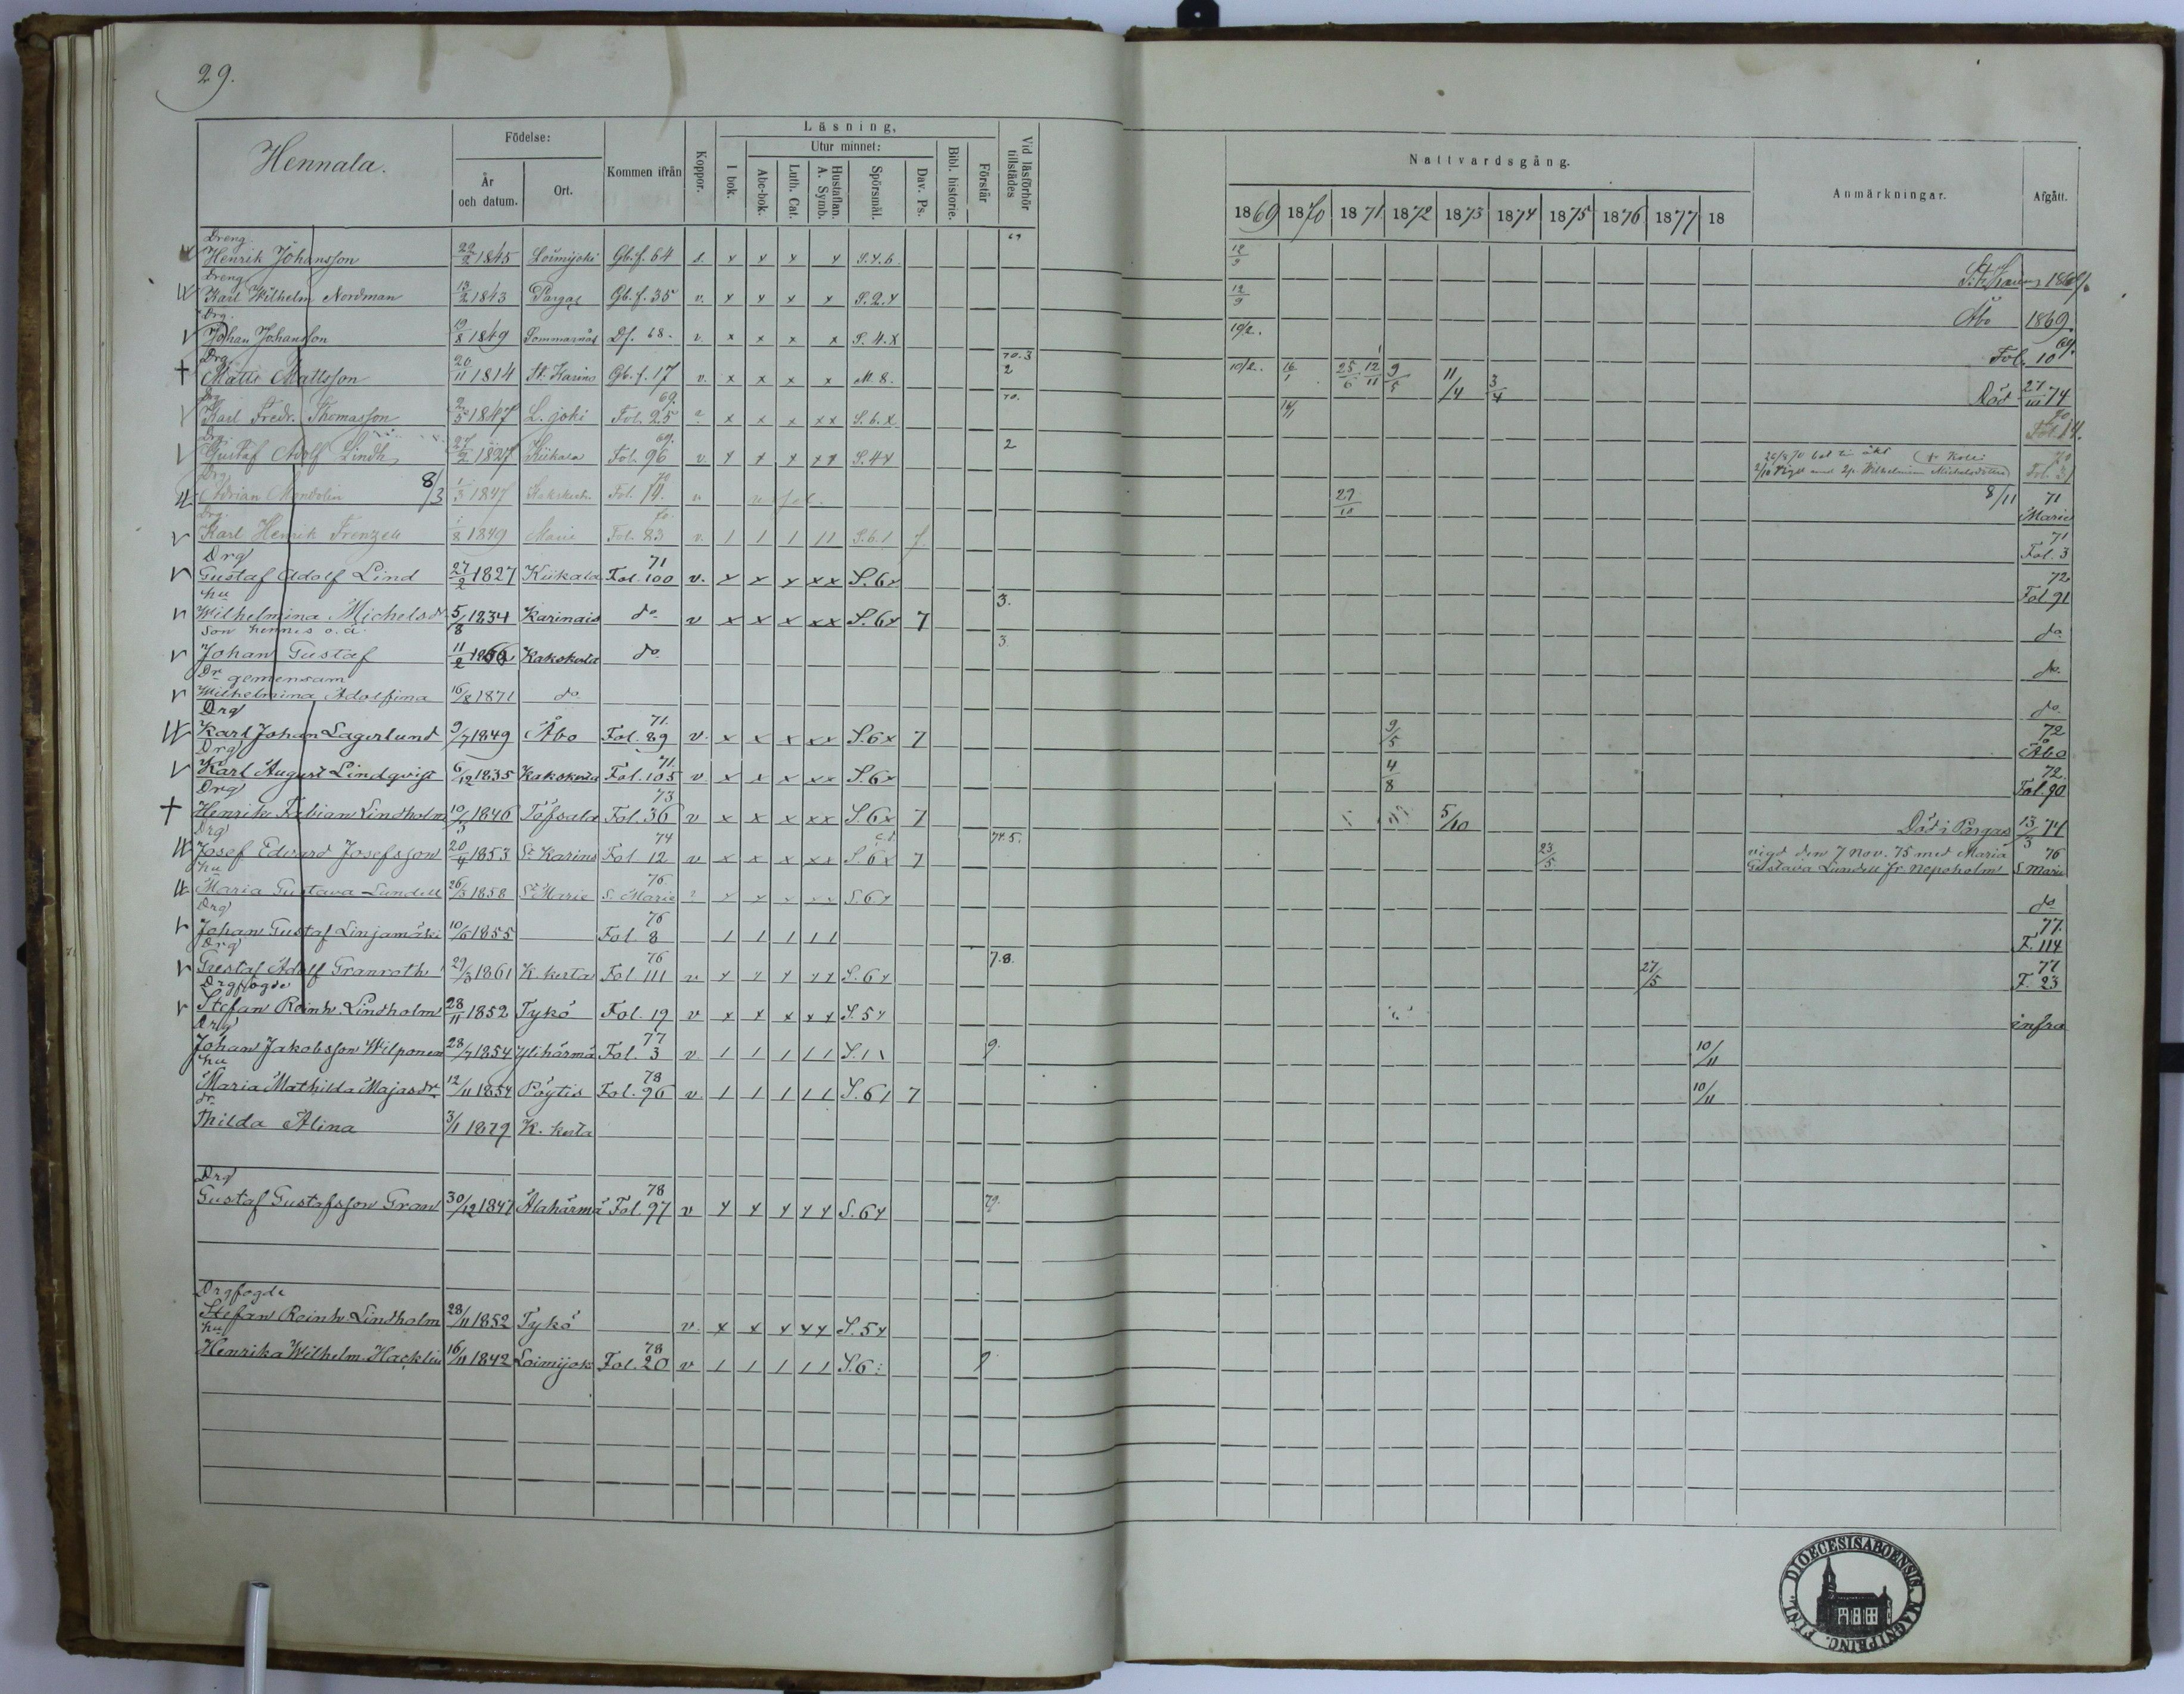 29.
Hennala.
Födelse:
År och datum.
Ort.
Kommen ifrån
Koppor.
Läsning,
I bok.
Utur minnet:
Abc-bok.
Luth. Cat.
Hustaflan. A. Symb.
Spörsmål.
Dav. Ps.
Bibl. historie.
Förstår
Vid läsförhör tillstädes
Nattvardsgång.
1869 1870 1871 1872 1873 1874 1875 1876 1877 18
Anmärkningar.
Afgått.
Dreng
Henrik Johansson 22/2 1845 Loimijoki Gb. f. 64 x x x x S. 4. 6 69 12/9
Dreng
Karl Wilhelm Nordman 13/2 1843 Pargas Gb. f. 35 v. x x x x S. 2. x 12/9 Åbo 1869.
Drg.
Johan Johansson 19/8 1849 Df. 68. v. x x x x S. 4. x 10/2. Fol. 10 69.
Drg
† Matts Mattsson 20/11 1814 St. Karins Gb. f. 17 v. x x x x M. 8. 70. 3 2 10/2. 16/1 25/6 12/11 9/5 11/4 3/4 Död 74
Drg
Karl Fredr. Thomasson 2/5 1847 L. joki Fol. 25 69. x x x x x S. 6. x 70. 14/1 Fol. 14. 70
Drg.
Gustaf Adolf Lindh 27/2 1827 Kiikala Fol. 96 69. v. x x x x x S. 4 x 2 Wilhelmina Michelsdotter Fol. 31 70
Drg
Adrian Mondolin 8/3 1/3 1847 Fol. 14. 70 v 29/10 8/11 71 Marie
Drg.
Karl Henrik Frenzell 1/8 1849 Marie Fol. 83 70. v. 1 1 1 1 1 S. 6. 1 7 71 Fol. 3
Drg
Gustaf Adolf Lind 27/2 1827 Kiikala Fol. 100 71 v. x x x x x S. 6 x 72 Fol 91
hu
Wilhelmina Michelsdr 5/8 1834 Karinais do v x x x x x S. 6 x 7 3. do
son hennes o. ä.
Johan Gustaf 11/2 1866 Kakskerta do 3. do
Dr gemensam
Wilhelmina Adolfina 16/8 1871 do do
Drg
Karl Johan Lagerlund 9/7 1849 Åbo Fol. 89 71. v. x x x x x S. 6 x 7 9/5 72 Åbo
Drg
Karl August Lindqvist 6/12 1835 Kakskerta Fol. 105 71. v x x x x x S. 6 x 4/8 72. Fol. 90
Drg
† Henrik Fabian Lindholm 10/5 1846 Töfsala Fol. 36 73 v x x x x x S. 6 x 7 5/10 Död i Pargas 13/3 74
Drg
Josef Edvard Josefsson 20/4 1853 St Karins Fol 12 74 v x x x x x S. 6 x 7 74. 5. 23/5 vigd den 7 Nov. 75 med Maria Gustava Lundell fr. Nepoholm 76 S. Marie
hu
Maria Gustava Lundell 26/3 1858 St Marie S. Marie 76. x x x x x S. 6 x do
Drg
Johan Gustaf Linjamäki 10/6 1855 Fol. 8 76 1 1 1 1 1 77. F. 114
Drg
Gustaf Adolf Granroth 29/3 1861 K. kerta Fol 111 76 v x x x x x S. 6 x 7. 8. 27/5 77 F. 23
Drgfogde
Stefan Reinh. Lindholm 28/11 1852 Tykö Fol. 19 v x x x x x S. 5 x infra
Drg
Johan Jakobsson Wilponen 28/7 1854 Ylihärmä Fol. 3 77 v. 1 1 1 1 1 S. 1 1 9. 10/11
hu
Maria Mathilda Majasdr 12/11 1854 Pöytis Fol. 96 78 v. 1 1 1 1 1 S. 6 1 7 10/11
dr
Thilda Alina 3/1 1879 K. kerta
Drg
Gustaf Gustafsson Gran 30/12 1847 Alahärmä Fol. 97 78 v x x x x x S. 6 x 79.
Drgfogde
Stefan Reinh. Lindholm 28/11 1852 Tykö v. x x x x x S. 5 x
hu
Henrika Wilhelm. Hacklin 16/11 1842 Loimijok Fol. 20 78 v 1 1 1 1 1 S. 6 9
DIOECESIS ABOENSIS. MAGNI PRINC. FINL.